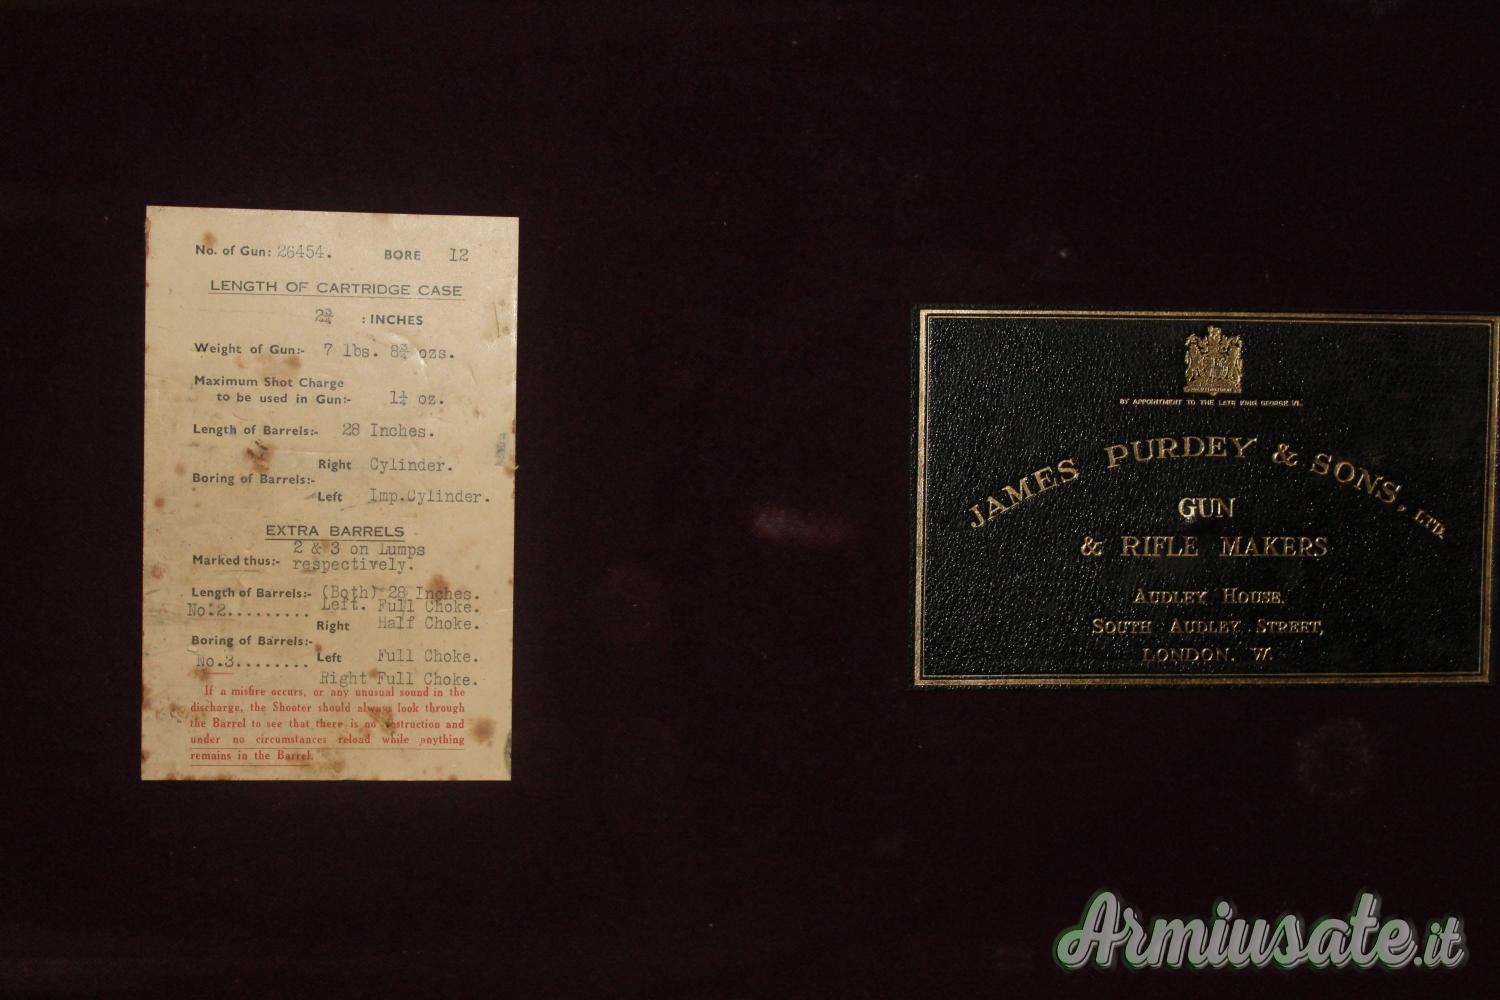 No. of Gun: 26454. BORE 12
LENGTH OF CARTRIDGE CASE
2¾ : INCHES
Weight of Gun:- 7 lbs. 8¾ ozs.
Maximum Shot Charge
to be used in Gun:- 1¼ oz.
Length of Barrels:- 28 Inches.
Right Cylinder.
Boring of Barrels:-
Left Imp.Cylinder.
EXTRA BARRELS
2 & 3 on Lumps
Marked thus:- respectively.
Length of Barrels:- (Both) 28 Inches.
No:2......... Left. Full Choke.
Right Half Choke.
Boring of Barrels:-
No.3........ Left Full Choke.
Right Full Choke.
If a misfire occurs, or any unusual sound in the
discharge, the Shooter should always look through
the Barrel to see that there is no obstruction and
under no circumstances reload while anything
remains in the Barrel.
BY APPOINTMENT TO THE LATE KING GEORGE VI.
JAMES PURDEY & SONS, LTD.
GUN
& RIFLE MAKERS
AUDLEY HOUSE.
SOUTH AUDLEY STREET,
LONDON. W.
Armiusate.it